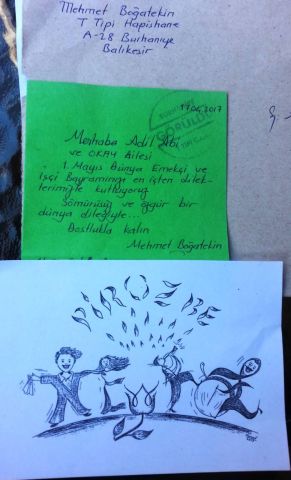 Mehmet Boğatekin
T Tipi Hapishane
A-28 Burhaniye
Balıkesir
17.04.2017
GÖRÜLDÜ
Merhaba Adil Abi
ve OKAY Ailesi
1. Mayıs Dünya Emekçi ve
İşçi Bayramınızı en içten dilek-
lerimizle kutluyoruz
Sömürüsüz ve özgür bir
dünya dileğiyle...
Dostlukla kalın
Mehmet Boğatekin
PİROZ BE
NEWROZ